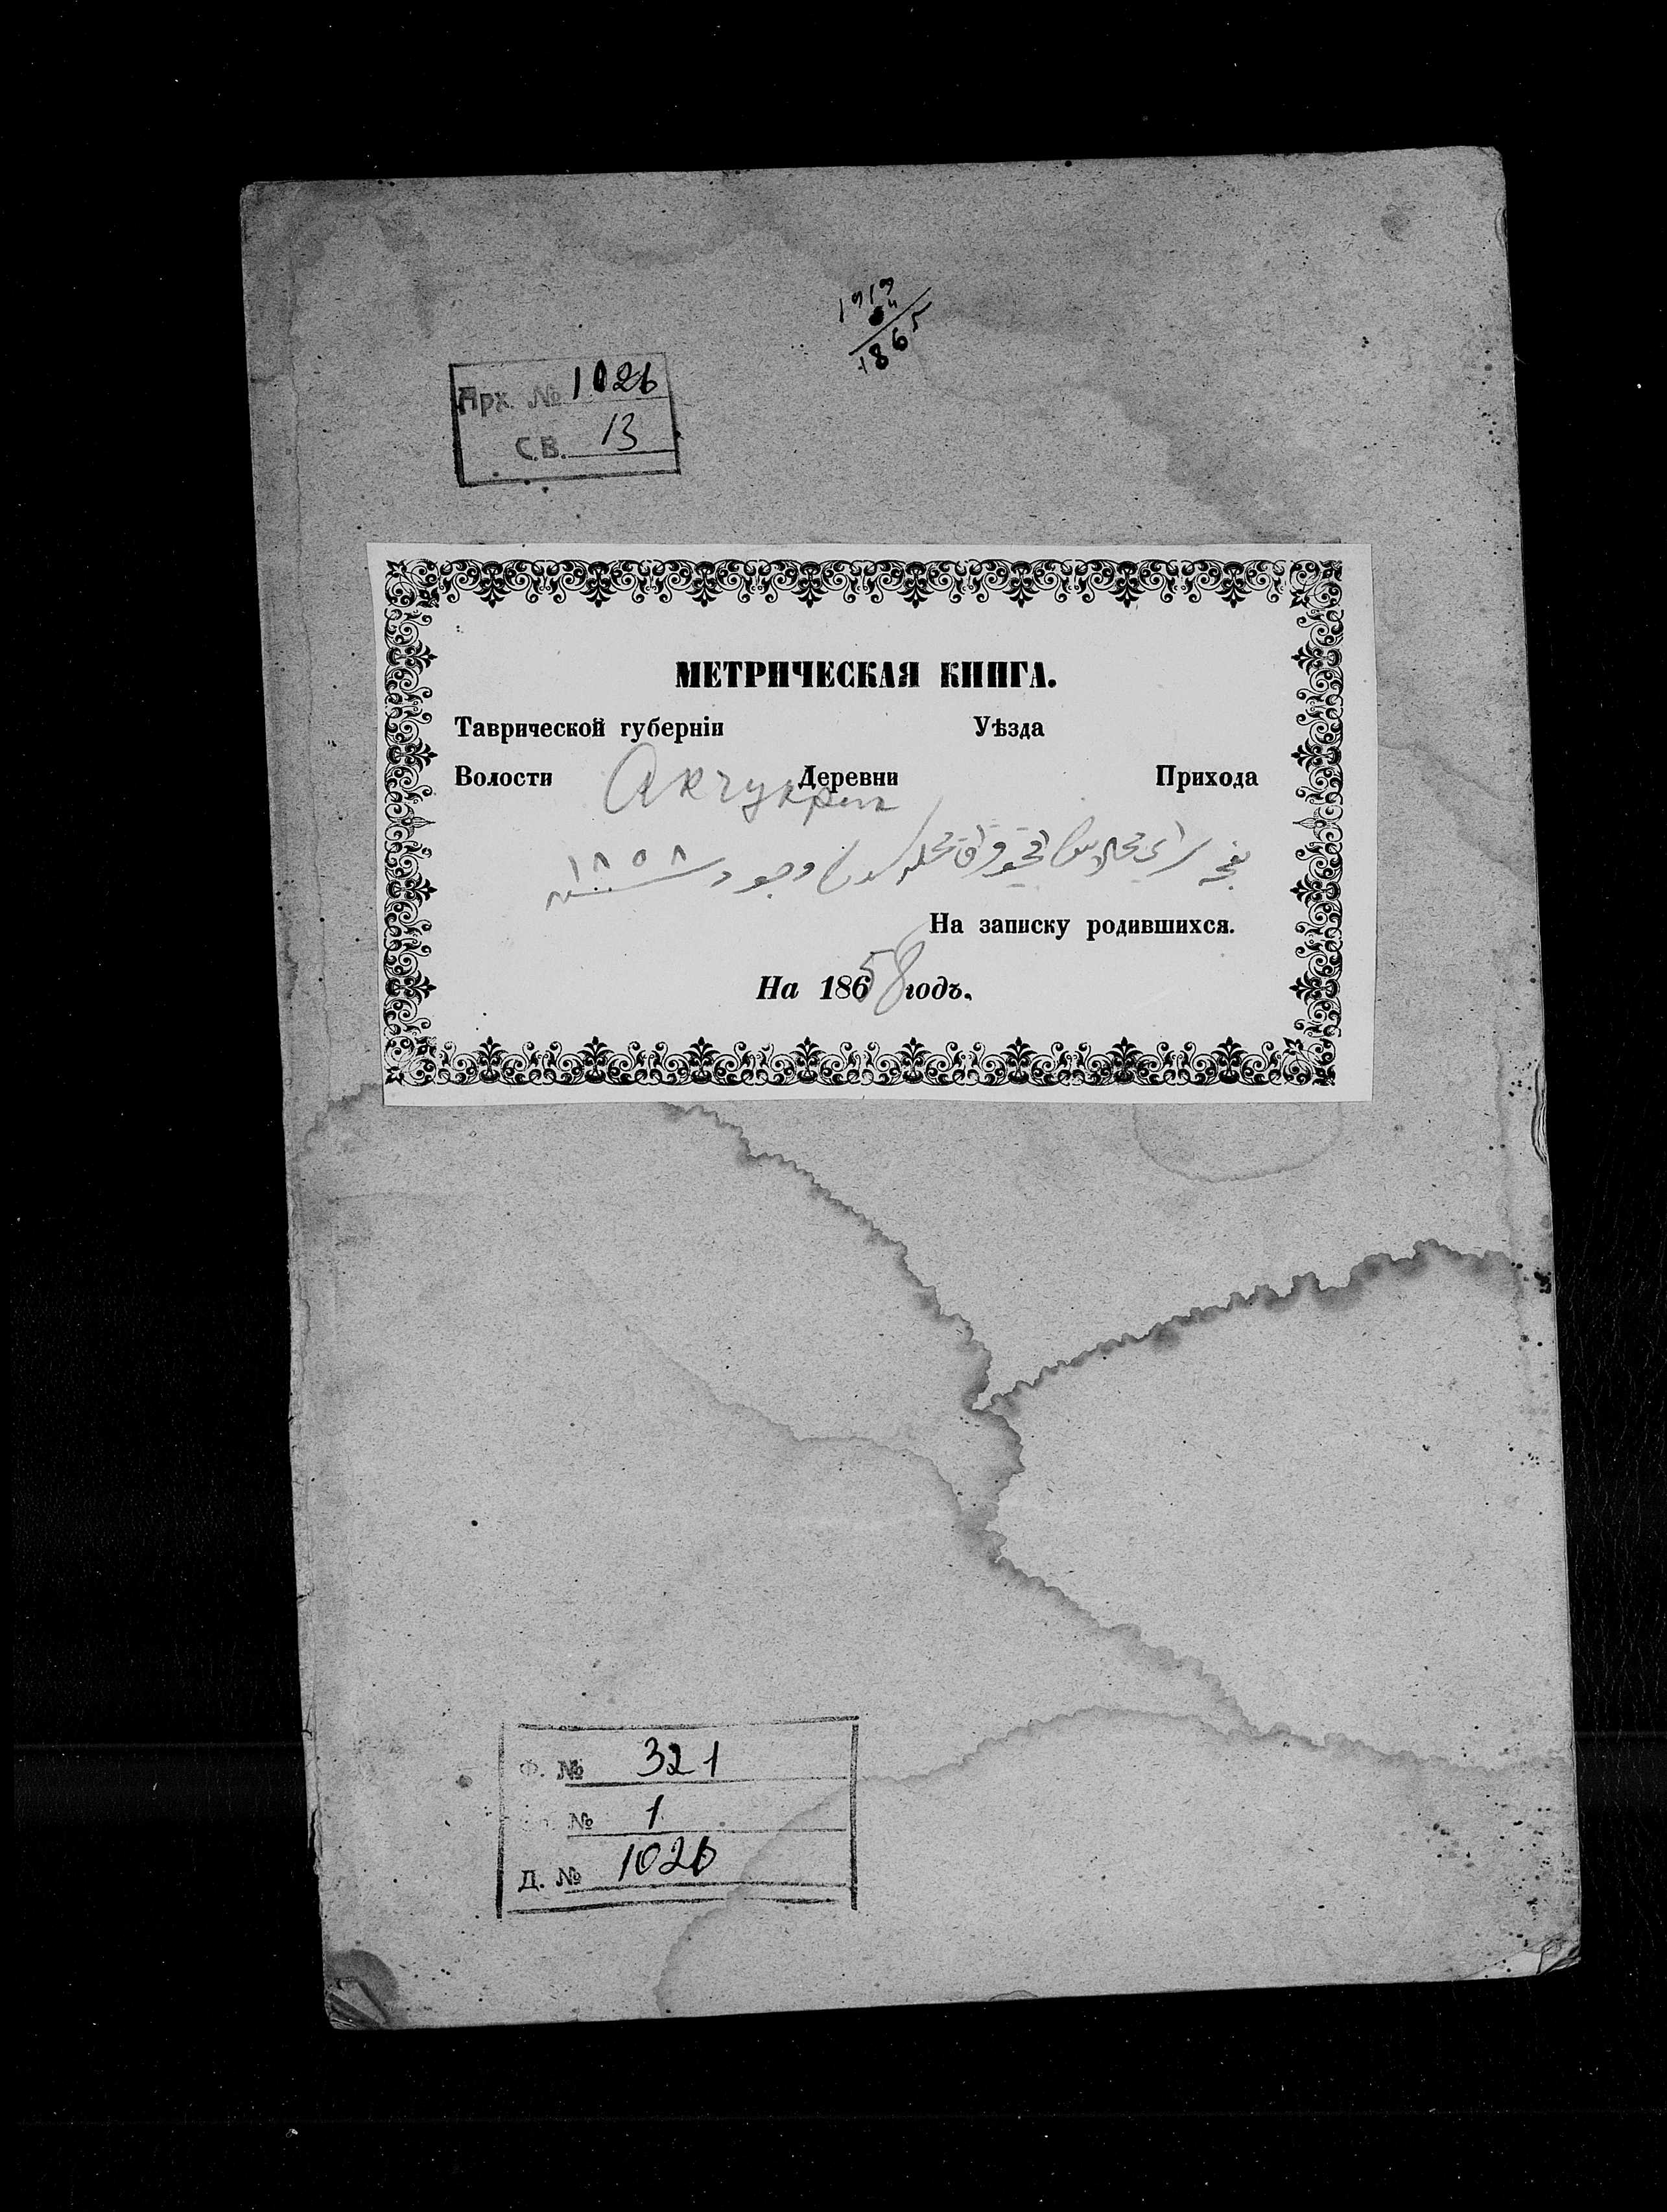 1919
1865
Арх. № 1026
С.В. 13
МЕТРИЧЕСКАЯ КНИГА.
Таврической губерніи Уѣзда
Волости Деревни Прихода
Акчукрак
سنه ١٨٥٨
На записку родившихся.
На 18658 годъ.
Ф. № 321
№ 1
Д. № 1026